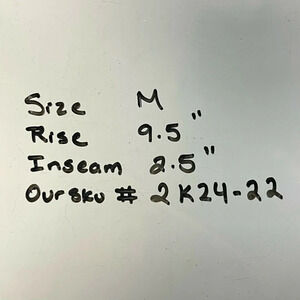 Size M
Rise 9.5"
Inseam 2.5"
Our sku # 2K24-22